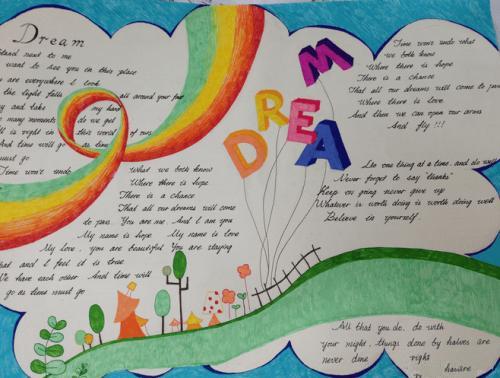 Dream
Stand next to me
want to see you in this place
are everywhere I look
the light falls all around your feet
and take my hand
many moments do we get
is right in this world of ours
And time will go as time
must go
Time won't undo what we both know
Where there is hope
There is a chance
That all our dreams will come
do pass. You are me. And I am you
My name is hope My name is love
My love, you are beautiful You are staying
and I feel it is true
We have each other And time will
go as time must go
DREAM
Time won't undo what
we both know
Where there is hope
There is a chance
That all our dreams will come to pass
Where there is love
And then we can open our arms
And fly !!!
Do one thing at a time, and do well
Never forget to say "thanks"
Keep on going never give up
Whatever is worth doing is worth doing well
Believe in yourself
All that you do, do with
your might, things done by halves are
never done right